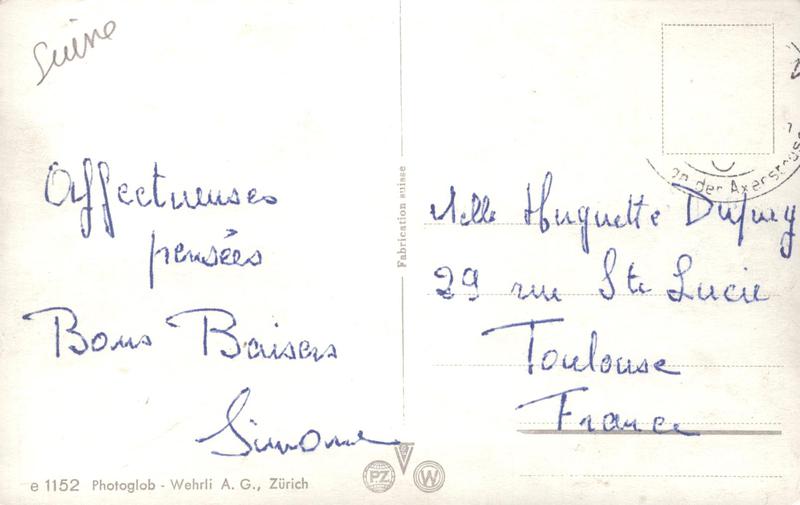 Suisse
Affectueuses
pensées
Bons Baisers
Simone
Fabrication suisse
an der Axenstrasse
Melle Huguette Dupuy
29 rue Ste Lucie
Toulouse
France
e 1152 Photoglob - Wehrli A. G., Zürich
PZ
W